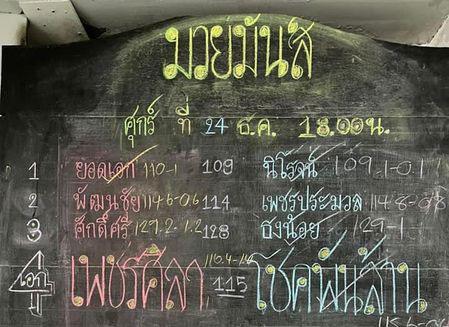 มวยมันส์
ศุกร์ ที่ 24 ธ.ค. 18.00น.
1 ยอดเอก 110-1 109 นิโรจน์ 109.1-0.1
2 พัฒนชัย 114.6-0.6 114 เพชรประมวล 114.8-0.8
3 ศักดิ์ศรี 129.2-1.2 128 ธงน้อย 129-1
4 เอก เพชรศิลา 115 โชคพันล้าน